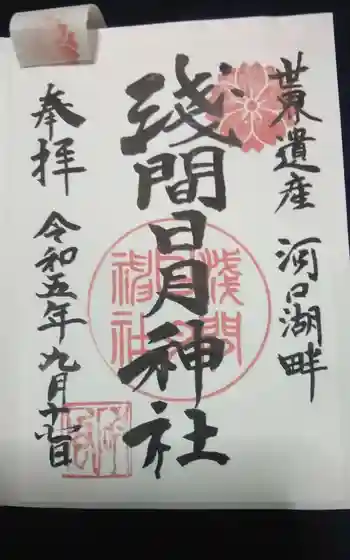 世界遺産 河口湖畔
淺間日月神社
奉拝
令和五年九月十一日